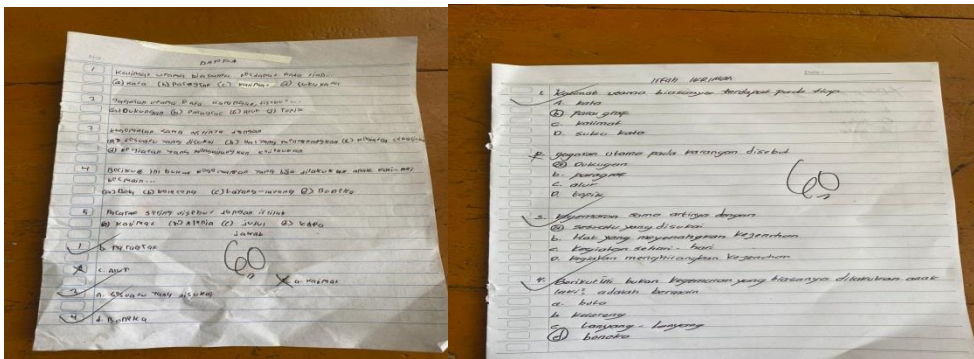 DAFFA
1 Kalimat utama biasanya terdapat pada tiap...
(a) kata (b) paragraf (c) kalimat (d) suku kata
2 gagasan utama pada karangan disebut...
(a) Dukungan (b) Paragraf (c) Alur (d) Topik
3 kegemaran sama artinya dengan
(a) sesuatu yang disukai (b) hal yang menyenangkan (c)
(d) kegiatan yang
4 Berikut ini bukan kegemaran yang bisa dilakukan anak laki-laki
bermain...
(a) Bola (b) kelereng (c) layang-layang (d) Boneka
5 Paragraf sering disebut dengan istilah
(a) kalimat (b) Alenia (c) (d) kata
Jawab
1 b. Paragraf
2 c. Alur
3 A. sesuatu yang disukai
4 d. Boneka
a. kalimat
60
1. Kalimat utama biasanya terdapat pada tiap
A. kata
(b) paragraf
c. kalimat
D. suku kata
2. gagasan utama pada karangan disebut
(a) Dukungan
b. paragraf
c. alur
D. topik
60
3. kegemaran sama artinya dengan
(a) sesuatu yang disukai
b. Hal yang menyenangkan kejenuhan
c. kegiatan sehari - hari
D. kegiatan menghilangkan kejenuhan
4. Berikut ini bukan kegemaran yang biasanya dilakukan anak
laki² adalah bermain
a. bola
b. kelereng
c. Lanyang - Lanyang
(d) boneka